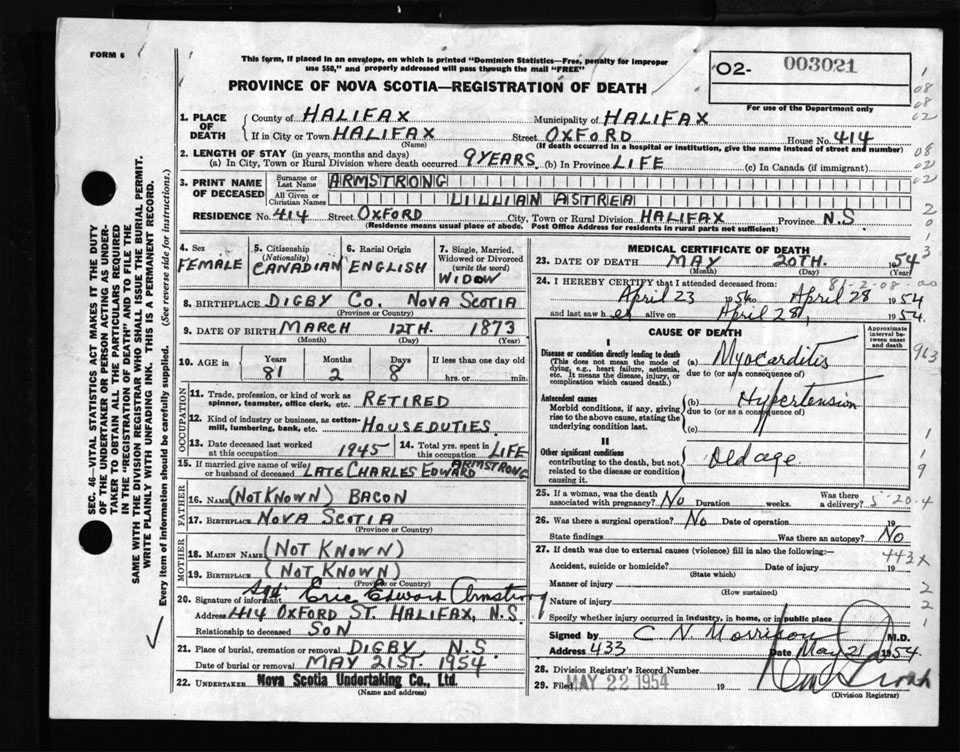 FORM 6
This form, if placed in an envelope, on which is printed "Dominion Statistics—Free, penalty for improper
use $50," and properly addressed will pass through the mail "FREE"
PROVINCE OF NOVA SCOTIA—REGISTRATION OF DEATH
O2- 003021
For use of the Department only
1. PLACE OF DEATH
County of HALIFAX Municipality of HALIFAX
If in City or Town HALIFAX Street OXFORD House No. 414
(Name) (If death occurred in a hospital or institution, give the name instead of street and number)
2. LENGTH OF STAY (in years, months and days)
(a) In City, Town or Rural Division where death occurred 9 YEARS (b) In Province LIFE (c) In Canada (if immigrant)
3. PRINT NAME OF DECEASED
Surname or Last Name ARMSTRONG
All Given or Christian Names LILLIAN ASTREA
RESIDENCE No. 414 Street OXFORD City, Town or Rural Division HALIFAX Province N.S
(Residence means usual place of abode. Post Office Address for residents in rural parts not sufficient)
SEC. 46—VITAL STATISTICS ACT MAKES IT THE DUTY
OF THE UNDERTAKER OR PERSON ACTING AS UNDER-
TAKER TO OBTAIN ALL THE PARTICULARS REQUIRED
IN THE "REGISTRATION OF DEATH" AND TO FILE THE
SAME WITH THE DIVISION REGISTRAR WHO SHALL ISSUE THE BURIAL PERMIT.
WRITE PLAINLY WITH UNFADING INK. THIS IS A PERMANENT RECORD.
Every item of information should be carefully supplied. (See reverse side for instructions.)
4. Sex
FEMALE
5. Citizenship
(Nationality)
CANADIAN
6. Racial Origin
ENGLISH
7. Single, Married,
Widowed or Divorced
(write the word)
WIDOW
8. BIRTHPLACE DIGBY CO. NOVA SCOTIA
(Province or County)
9. DATE OF BIRTH MARCH 12TH. 1873
(Month) (Day) (Year)
10. AGE in Years Months Days If less than one day old
81 2 8 hrs. or min.
OCCUPATION
11. Trade, profession, or kind of work as
spinner, teamster, office clerk, etc. RETIRED
12. Kind of industry or business, as cotton-
mill, lumbering, bank, etc. HOUSEDUTIES.
13. Date deceased last worked
at this occupation 1945
14. Total yrs. spent in
this occupation LIFE
15. If married give name of wife
or husband of deceased LATE CHARLES EDWARD ARMSTRONG
FATHER
16. NAME (NOT KNOWN) BACON
17. BIRTHPLACE NOVA SCOTIA
(Province or County)
MOTHER
18. MAIDEN NAME (NOT KNOWN)
19. BIRTHPLACE (NOT KNOWN)
(Province or County)
20. Signature of informant Sgd Eric Edward Armstrong
Address 414 OXFORD ST. HALIFAX, N.S.
Relationship to deceased SON
21. Place of burial, cremation or removal DIGBY, N.S
Date of burial or removal MAY 21ST. 1954
22. UNDERTAKER Nova Scotia Undertaking Co., Ltd.
(Name and address)
MEDICAL CERTIFICATE OF DEATH
23. DATE OF DEATH MAY 20TH. 1954
(Month) (Day) (Year)
24. I HEREBY CERTIFY that I attended deceased from:
April 23 1954 to April 28 1954
and last saw her alive on April 28, 1954.
CAUSE OF DEATH
Approximate interval between onset and death
I
Disease or condition directly leading to death
(This does not mean the mode of
dying, e.g., heart failure, asthenia,
etc. It means the disease, injury, or
complication which caused death.)
(a) Myocarditis
due to (or as a consequence of)
Antecedent causes
Morbid conditions, if any, giving
rise to the above cause, stating the
underlying condition last.
(b) Hypertension
due to (or as a consequence of)
(c)
II
Other significant conditions
contributing to the death, but not
related to the disease or condition
causing it.
Old age.
25. If a woman, was the death Was there
associated with pregnancy? No Duration weeks. a delivery?
26. Was there a surgical operation? No Date of operation 19
State findings Was there an autopsy? No
27. If death was due to external causes (violence) fill in also the following:—
Accident, suicide or homicide? Date of injury 19
(State which)
Manner of injury
(How sustained)
Nature of injury
Specify whether injury occurred in industry, in home, or in public place
Signed by C N Morrison M.D.
Address 433 Date May 21 1954.
28. Division Registrar's Record Number
29. Filed MAY 22 1954 19
(Division Registrar)